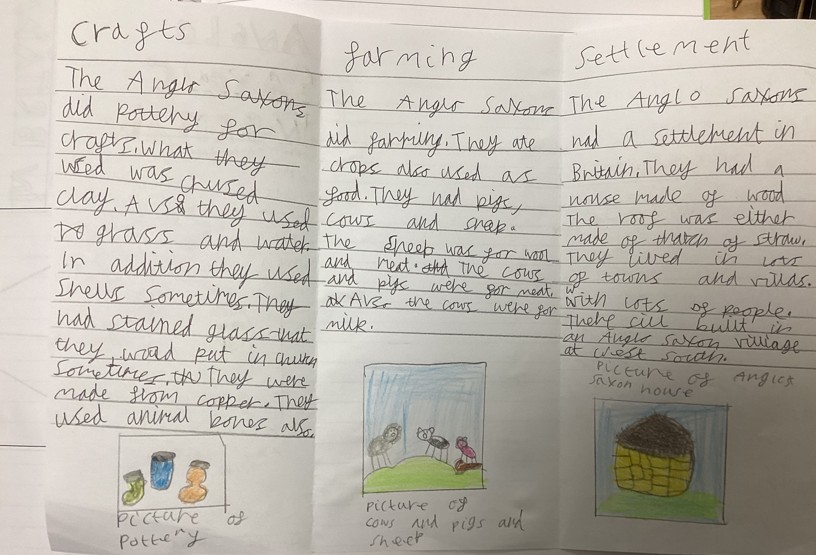 Crafts
The Anglo Saxons
did pottery for
crafts. What they
used was chused
clay. AVs& they used
to grass and water.
In addition they used
Shells Sometimes. They
had stained glass that
they woud put in church
Sometimes. They were
made from copper. They
used animal bones also.
Picture of
Pottery
farming
The Anglo Saxons
did farming. They ate
crops also used as
food. They had pigs,
cows and sheep.
The Sheep was for wool
and meat. The cows
and pigs were for meat.
the cows were for
milk.
Picture of
cows and pigs and
sheep
Settlement
The Anglo Saxons
had a settlement in
Britain. They had a
house made of wood
The roof was either
made of thatch of straw.
They lived in lots
of towns and villas.
With lots of people.
There sill built in
an Anglo Saxon village
at West South.
Picture of Anglos
Saxon house